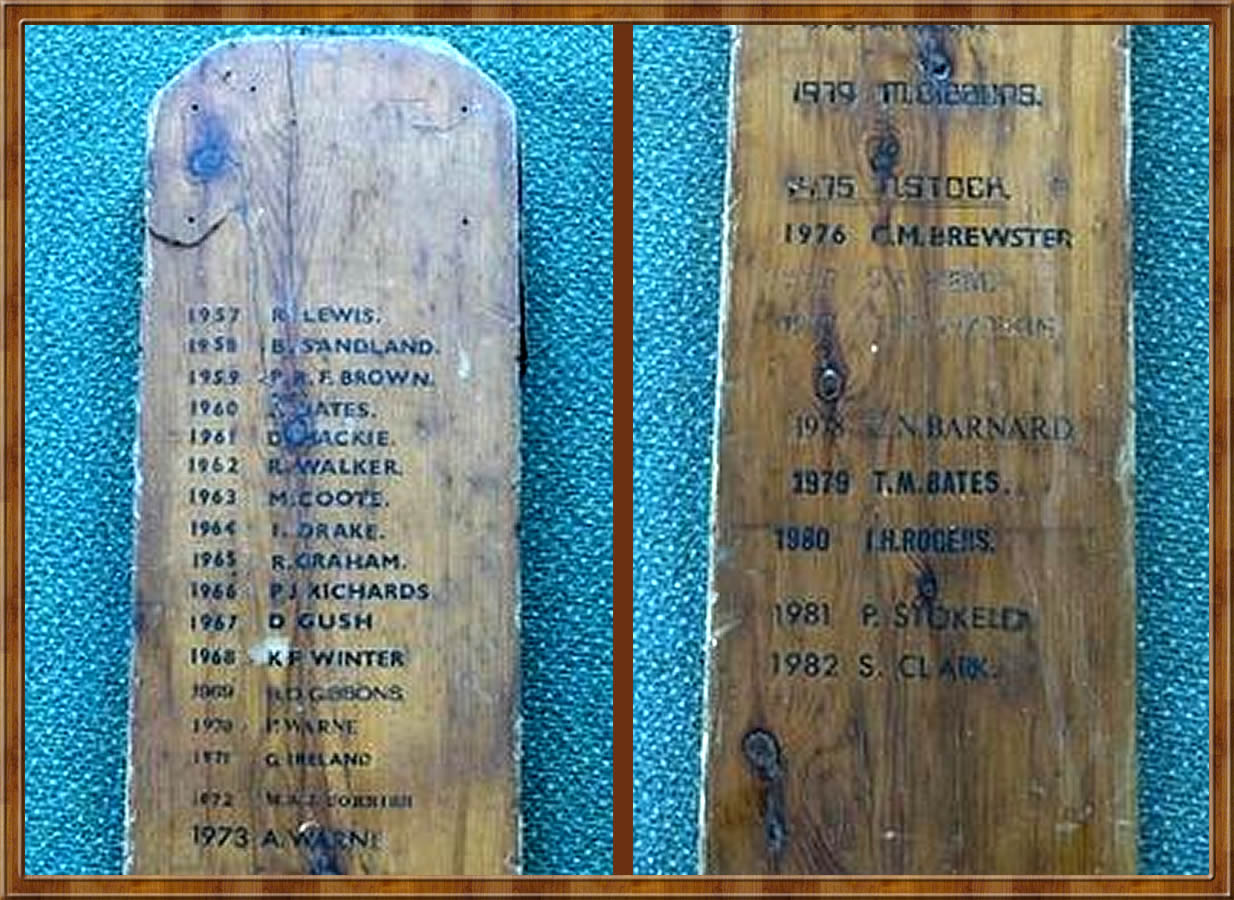 1957 R. LEWIS.
1958 B. SANDLAND.
1959 P. R. F. BROWN.
1960 BATES.
1961 D. MACKIE.
1962 R. WALKER.
1963 M. COOTE.
1964 I. DRAKE.
1965 R. GRAHAM.
1966 P J RICHARDS
1967 D GUSH
1968 K F WINTER
1969 GIBBONS
1970 P. WARNE
1971 G. IRELAND
1972 CORNISH
1973 A. WARNE
1979 M. GIBBONS.
1975 STOCK.
1976 C.M. BREWSTER
1978 N. BARNARD
1979 T.M. BATES.
1980 I.H. ROGERS.
1981 P. STOKELD
1982 S. CLARK.